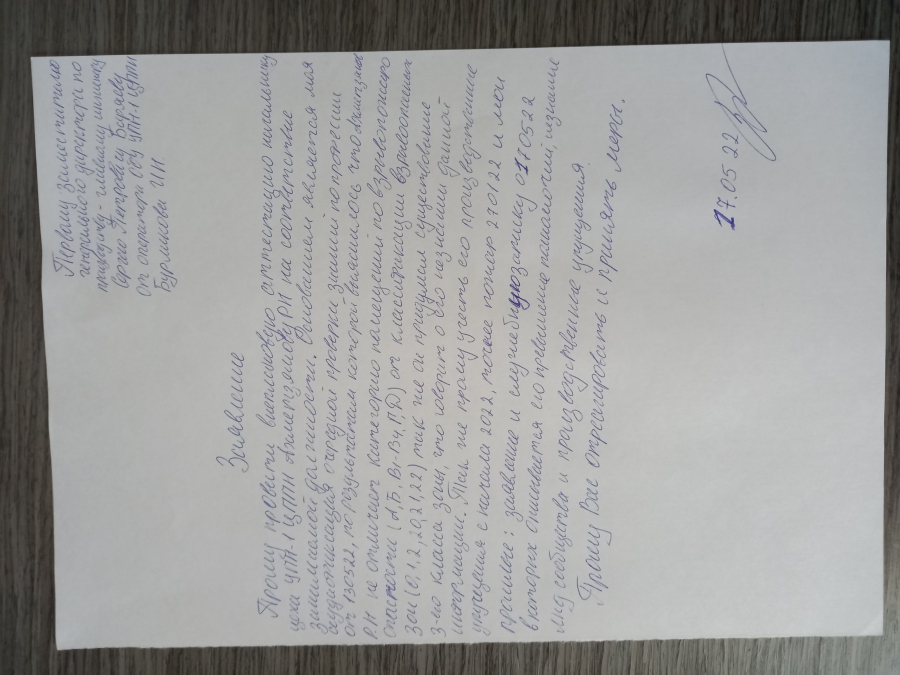 Первому заместителю
генерального директора по
производству - главному инженеру
Петровичу
От оператора ООУ УПН-1 ЦППН
Бурмасова И И
Заявление
Прошу провести внеплановую аттестацию начальнику
цеха УПН-1 ЦППН Ахметзянову РН на соответствие
занимаемой должности. Основанием является моя
аудиозапись очередной проверки знаний по профессии
от 130522, по результатам которой выяснилось что Ахметзянов
Р.Н не отличает категорию помещений по взрывопожаро
опасности (А, Б, В1-В4, Г, Д) от классификации взрывоопасных
зон (0, 1, 2, 20, 21, 22) так же он придумал существование
3-го класса зоны, что говорит о его незнании данной
информации. Так же прошу учесть его производственные
упущения с начала 2022, такие пожар 270122 и мои
прошлые: заявление и служебную записку 017.0522
в которых описывается его превышение полномочий,
и производственные упущения.
Прошу Вас отреагировать и принять меры.
17.05 22